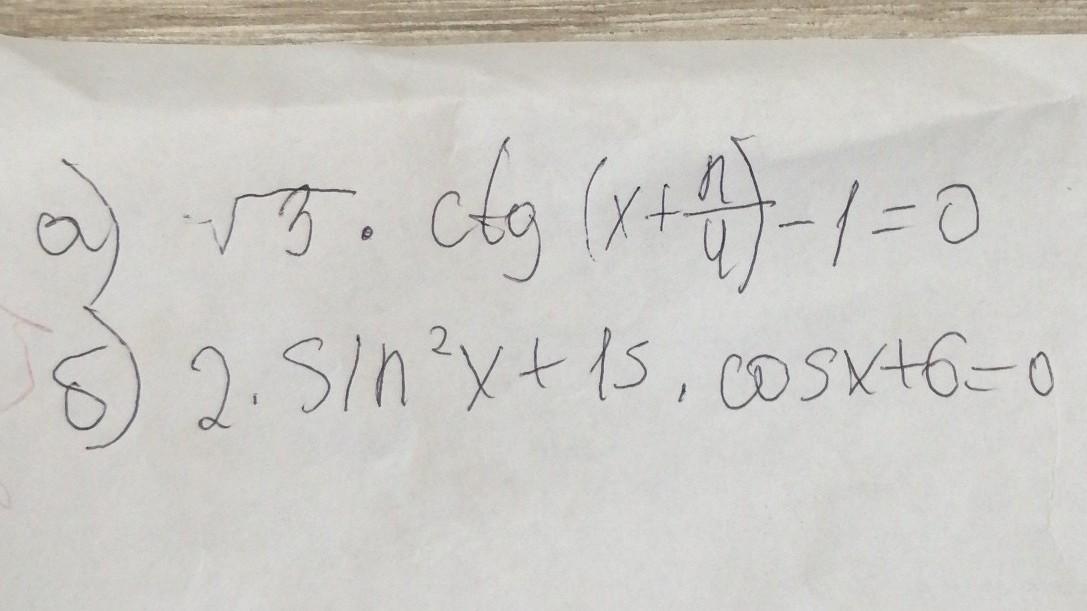 а) √3 · ctg (x + π/4) - 1 = 0
б) 2 · sin²x + 15 · cosx + 6 = 0